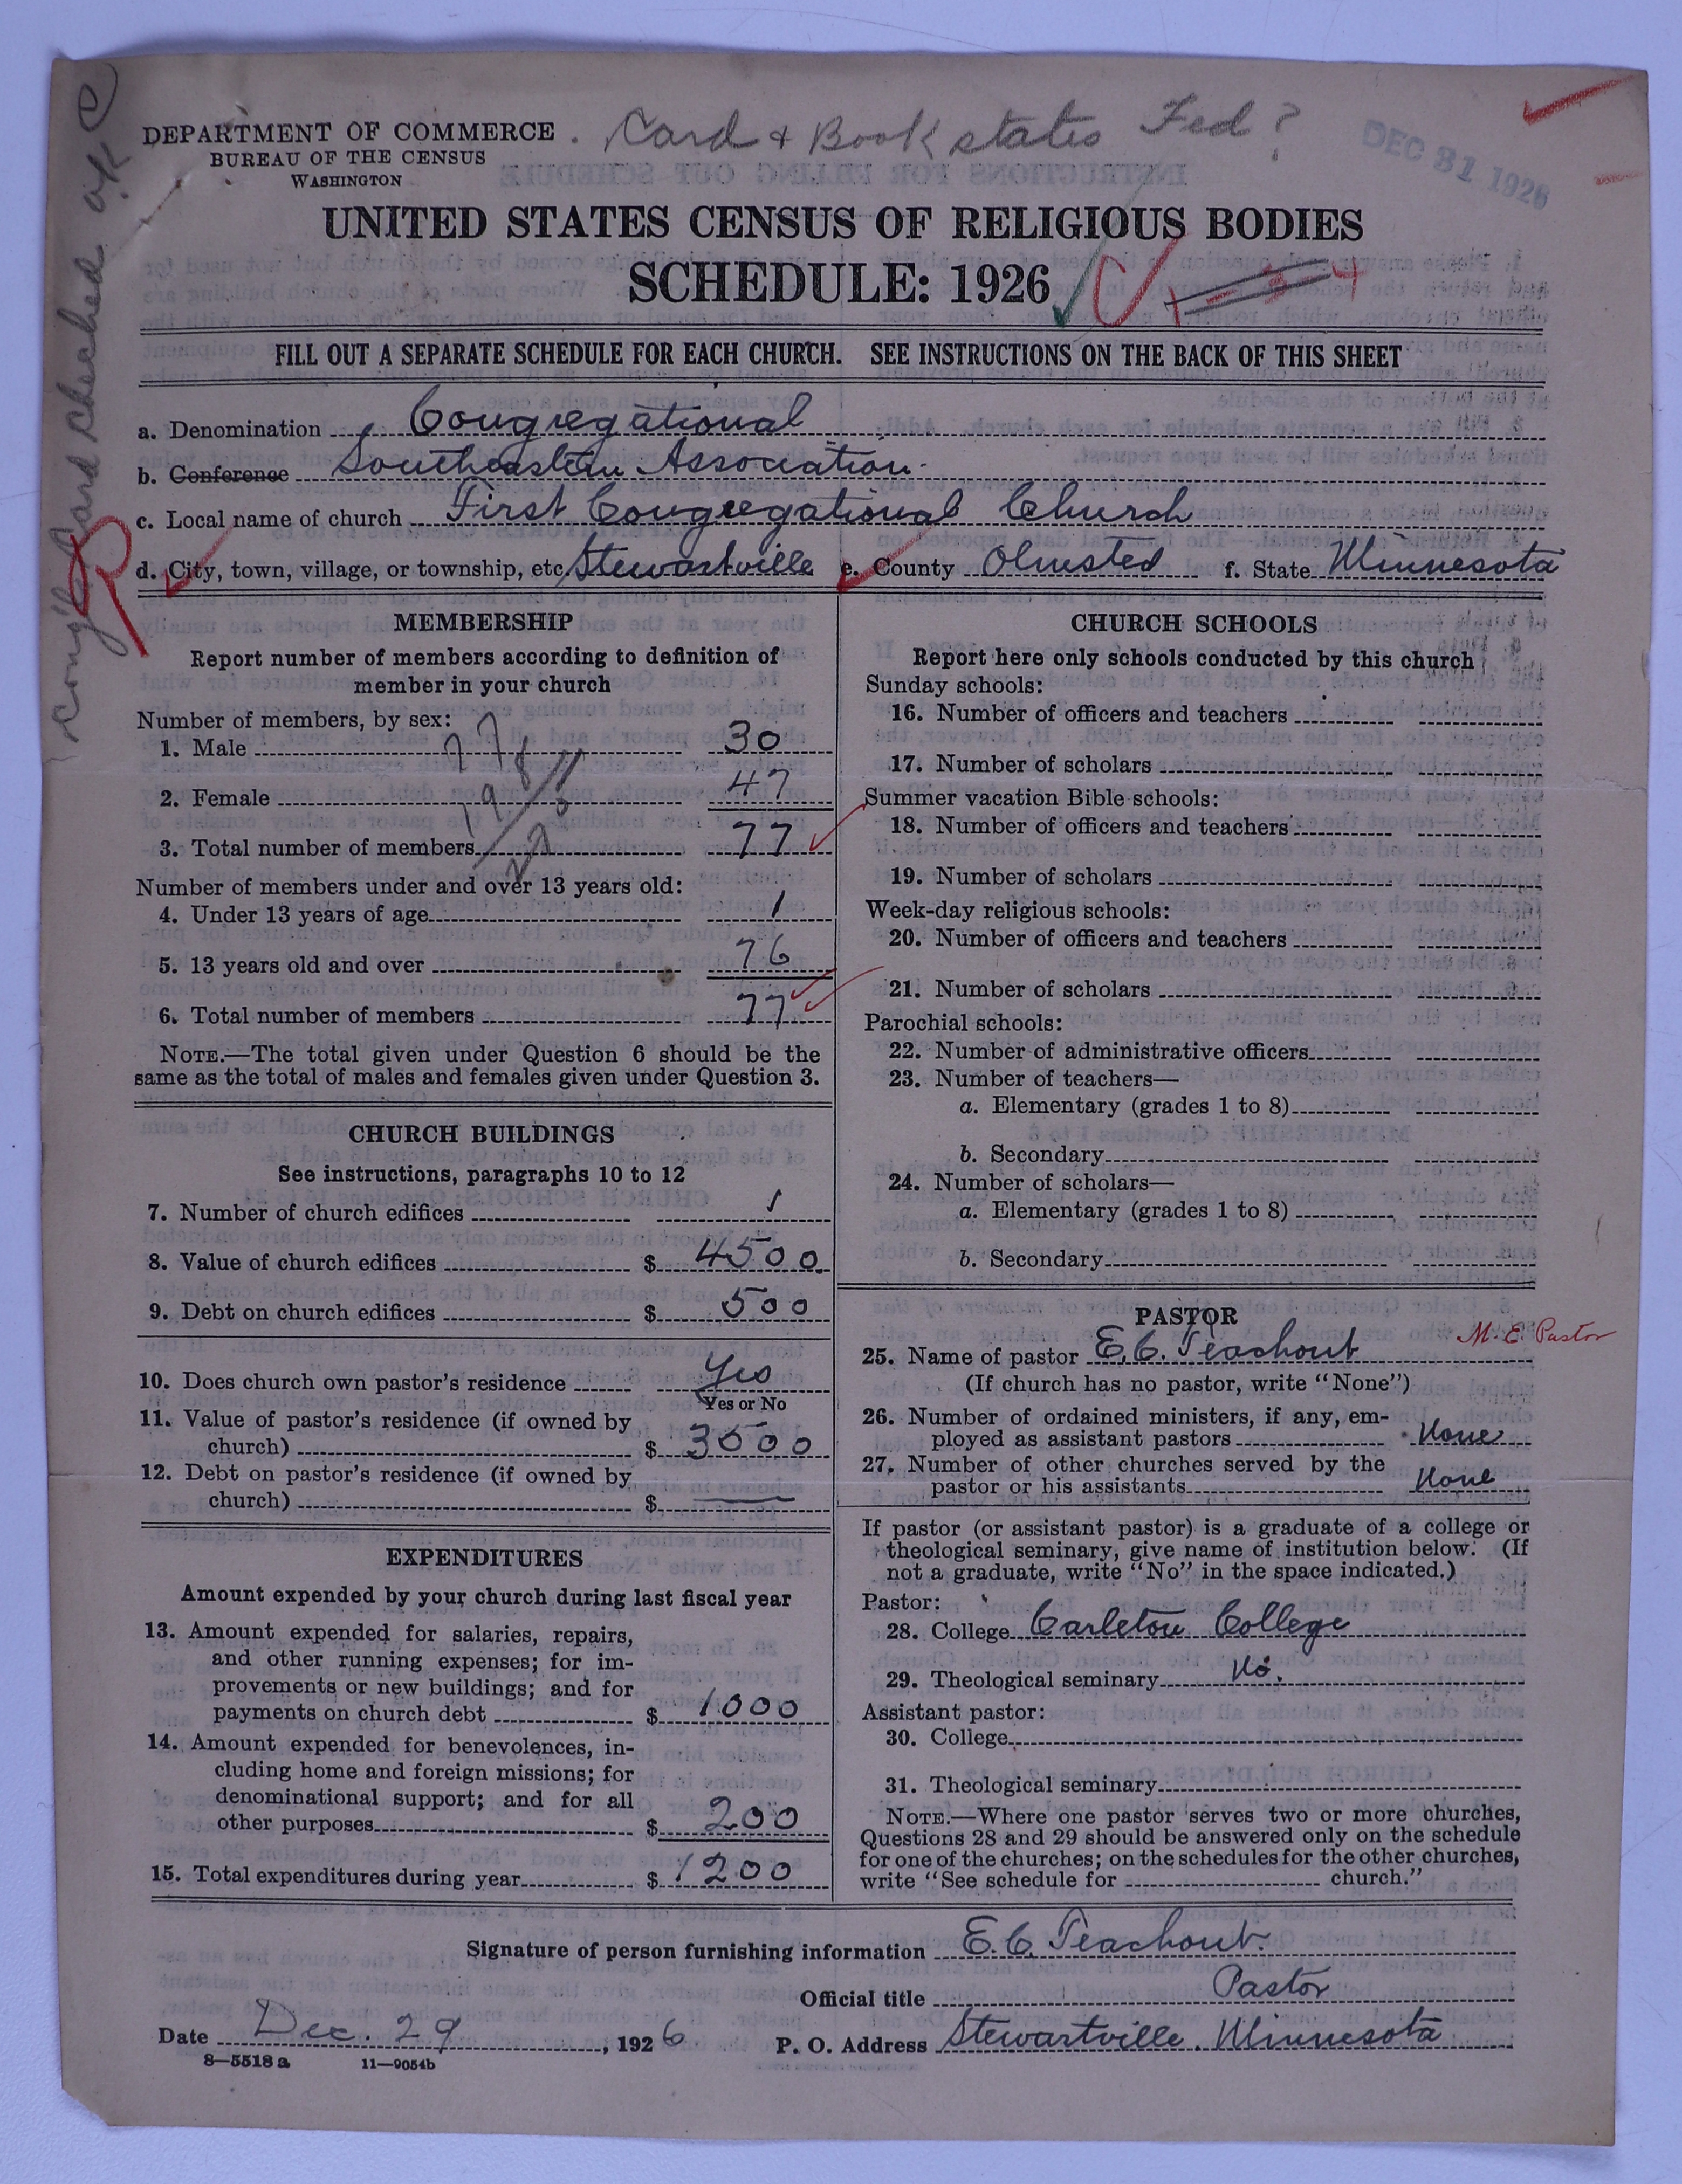 DEPARTMENT OF COMMERCE
BUREAU OF THE CENSUS
WASHINGTON
Card & Book states Fed?
DEC 31 1926
Cong'l Card checked O.K. C
UNITED STATES CENSUS OF RELIGIOUS BODIES
SCHEDULE: 1926
FILL OUT A SEPARATE SCHEDULE FOR EACH CHURCH. SEE INSTRUCTIONS ON THE BACK OF THIS SHEET
a. Denomination Congregational
b. Conference Southeastern Association
c. Local name of church First Congregational Church
d. City, town, village, or township, etc. Stewartville e. County Olmsted f. State Minnesota
R
MEMBERSHIP
Report number of members according to definition of
member in your church
Number of members, by sex:
1. Male 30
2. Female 47
3. Total number of members 77
Number of members under and over 13 years old:
4. Under 13 years of age 1
5. 13 years old and over 76
6. Total number of members 77
NOTE.—The total given under Question 6 should be the
same as the total of males and females given under Question 3.
CHURCH BUILDINGS
See instructions, paragraphs 10 to 12
7. Number of church edifices 1
8. Value of church edifices $ 4500
9. Debt on church edifices $ 500
10. Does church own pastor's residence Yes
Yes or No
11. Value of pastor's residence (if owned by
church) $ 3500
12. Debt on pastor's residence (if owned by
church) $ —
EXPENDITURES
Amount expended by your church during last fiscal year
13. Amount expended for salaries, repairs,
and other running expenses; for im-
provements or new buildings; and for
payments on church debt $ 1000
14. Amount expended for benevolences, in-
cluding home and foreign missions; for
denominational support; and for all
other purposes $ 200
15. Total expenditures during year $ 1200
CHURCH SCHOOLS
Report here only schools conducted by this church
Sunday schools:
16. Number of officers and teachers
17. Number of scholars
Summer vacation Bible schools:
18. Number of officers and teachers
19. Number of scholars
Week-day religious schools:
20. Number of officers and teachers
21. Number of scholars
Parochial schools:
22. Number of administrative officers
23. Number of teachers—
a. Elementary (grades 1 to 8)
b. Secondary
24. Number of scholars—
a. Elementary (grades 1 to 8)
b. Secondary
PASTOR
25. Name of pastor E.C. Teachout M.E. Pastor
(If church has no pastor, write "None")
26. Number of ordained ministers, if any, em-
ployed as assistant pastors None
27. Number of other churches served by the
pastor or his assistants None
If pastor (or assistant pastor) is a graduate of a college or
theological seminary, give name of institution below. (If
not a graduate, write "No" in the space indicated.)
Pastor:
28. College Carleton College
29. Theological seminary No.
Assistant pastor:
30. College
31. Theological seminary
NOTE.—Where one pastor serves two or more churches,
Questions 28 and 29 should be answered only on the schedule
for one of the churches; on the schedules for the other churches,
write "See schedule for church."
Signature of person furnishing information E.C. Teachout
Official title Pastor
Date Dec. 29, 1926 P. O. Address Stewartville, Minnesota
8—5518 a 11—9054b